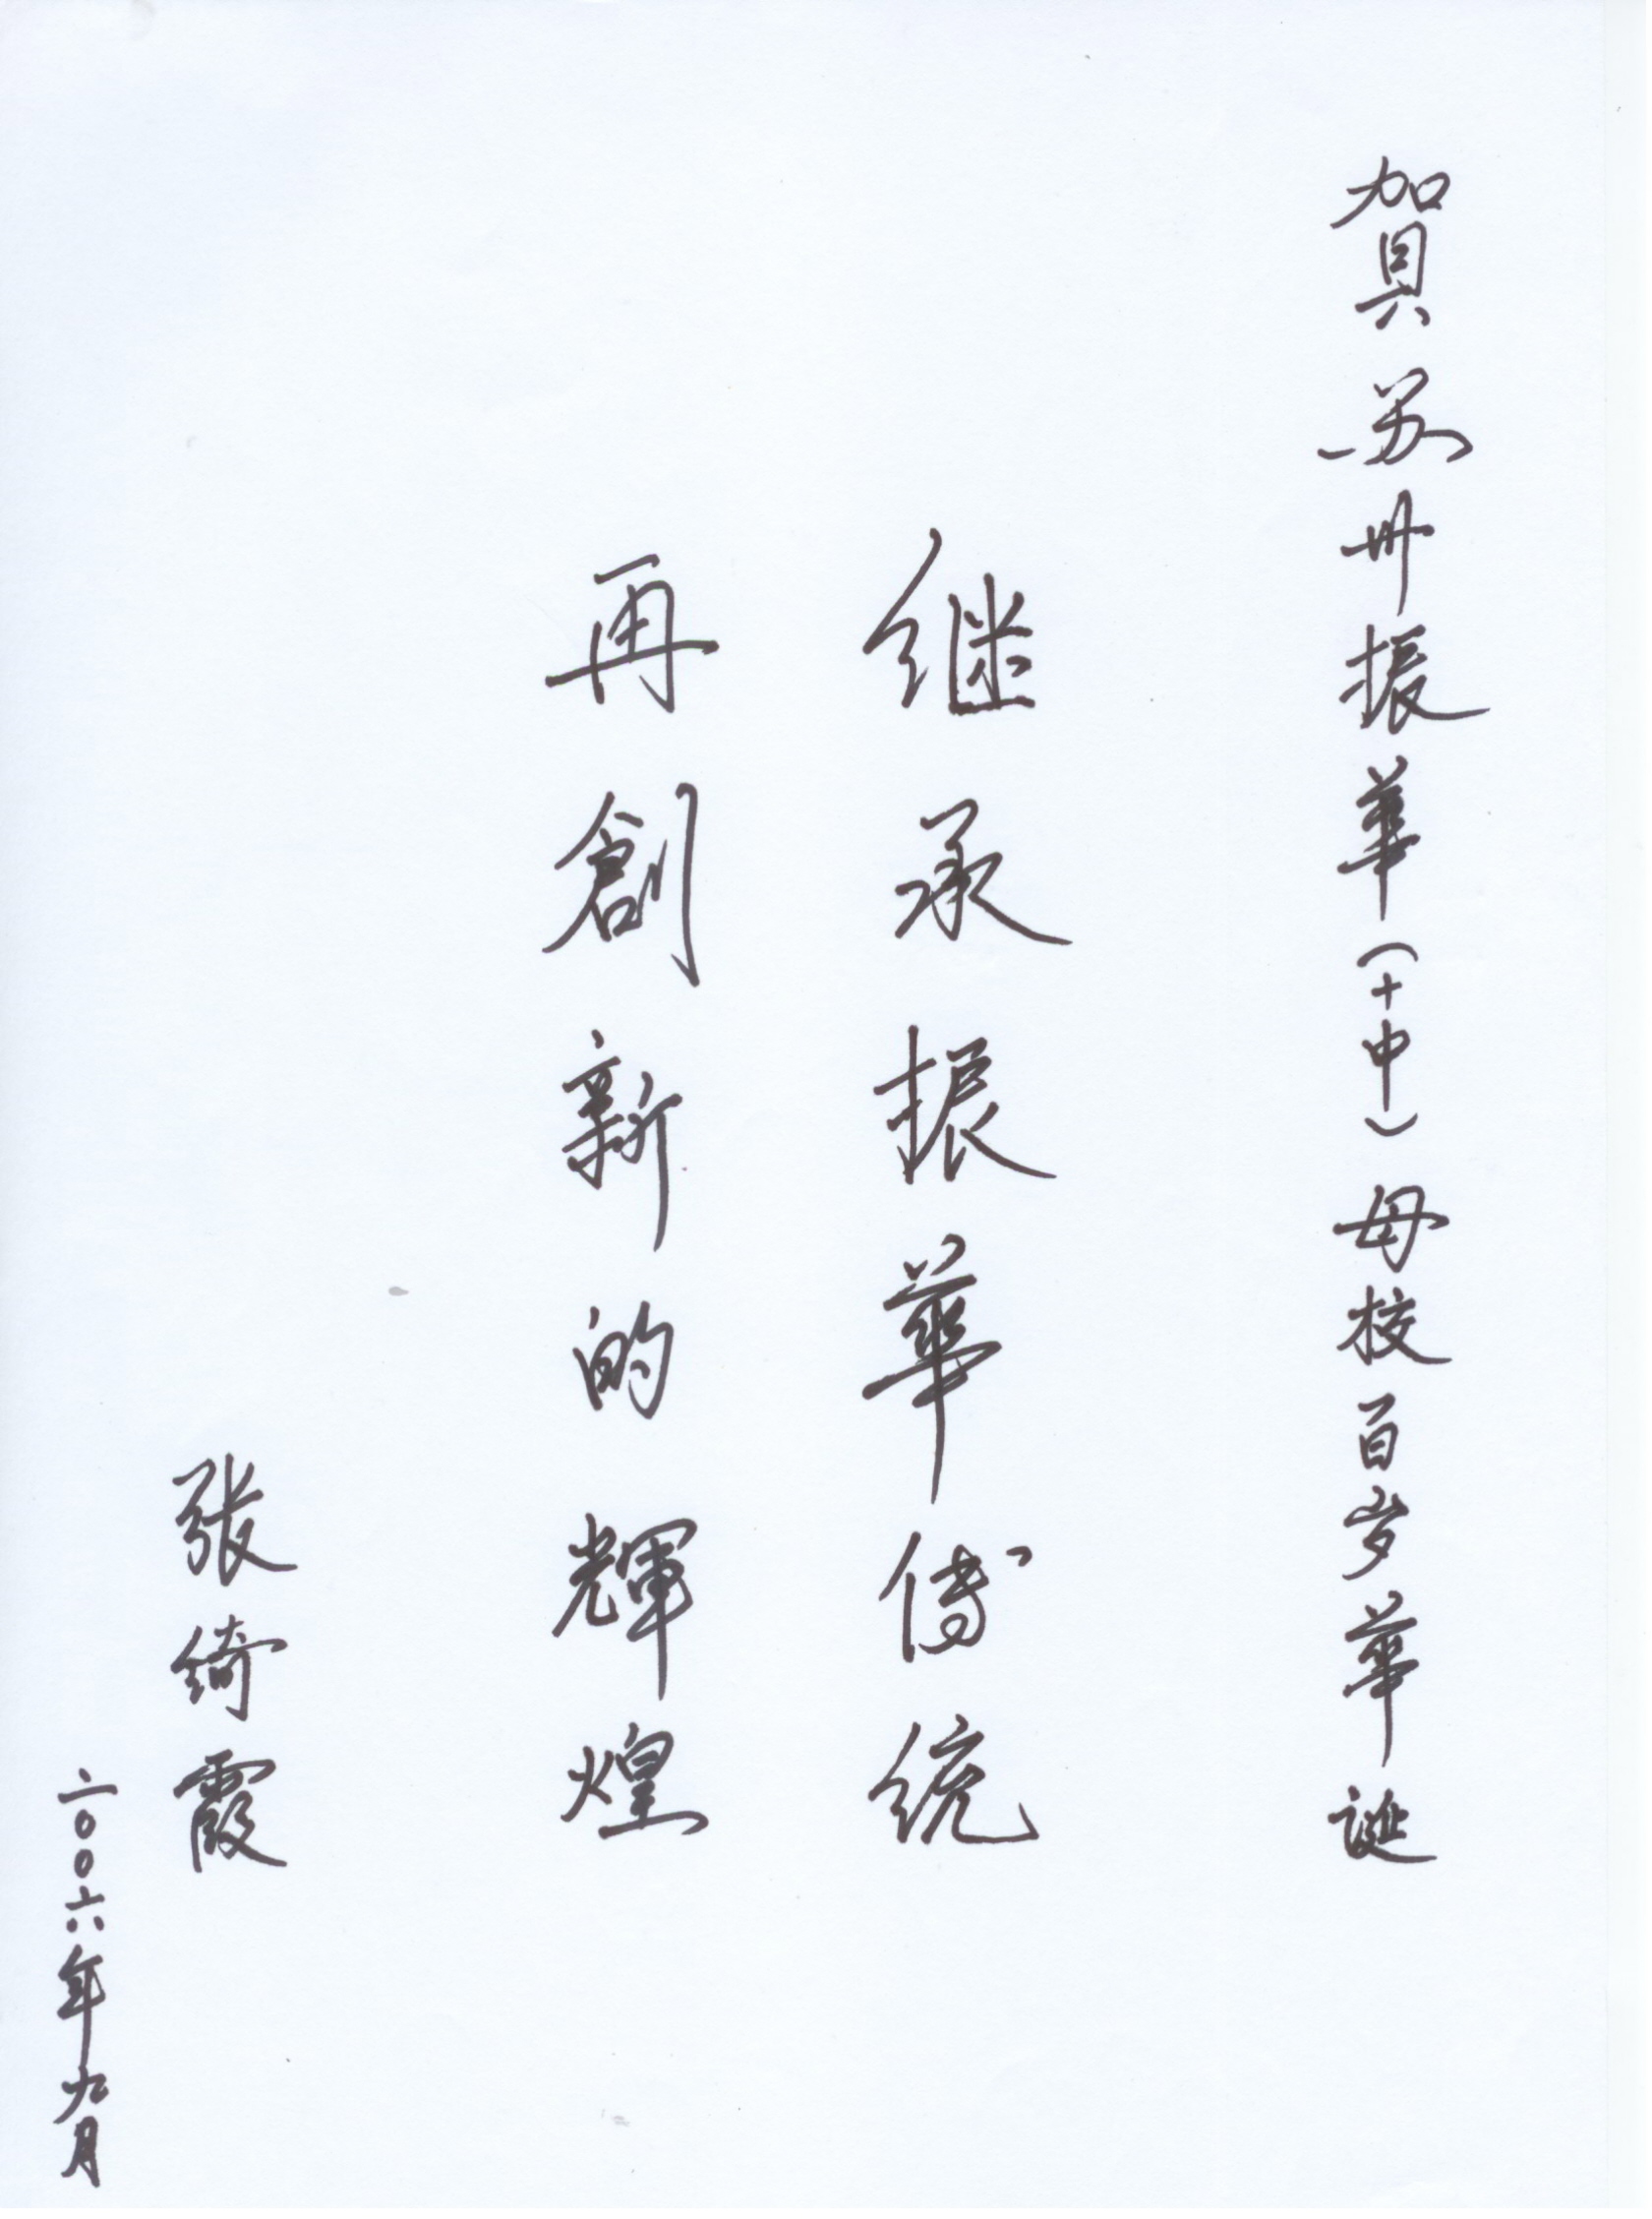 賀苏州振華（十中）母校百岁華诞
继承振華传統
再創新的輝煌
张绮霞
二00六年九月